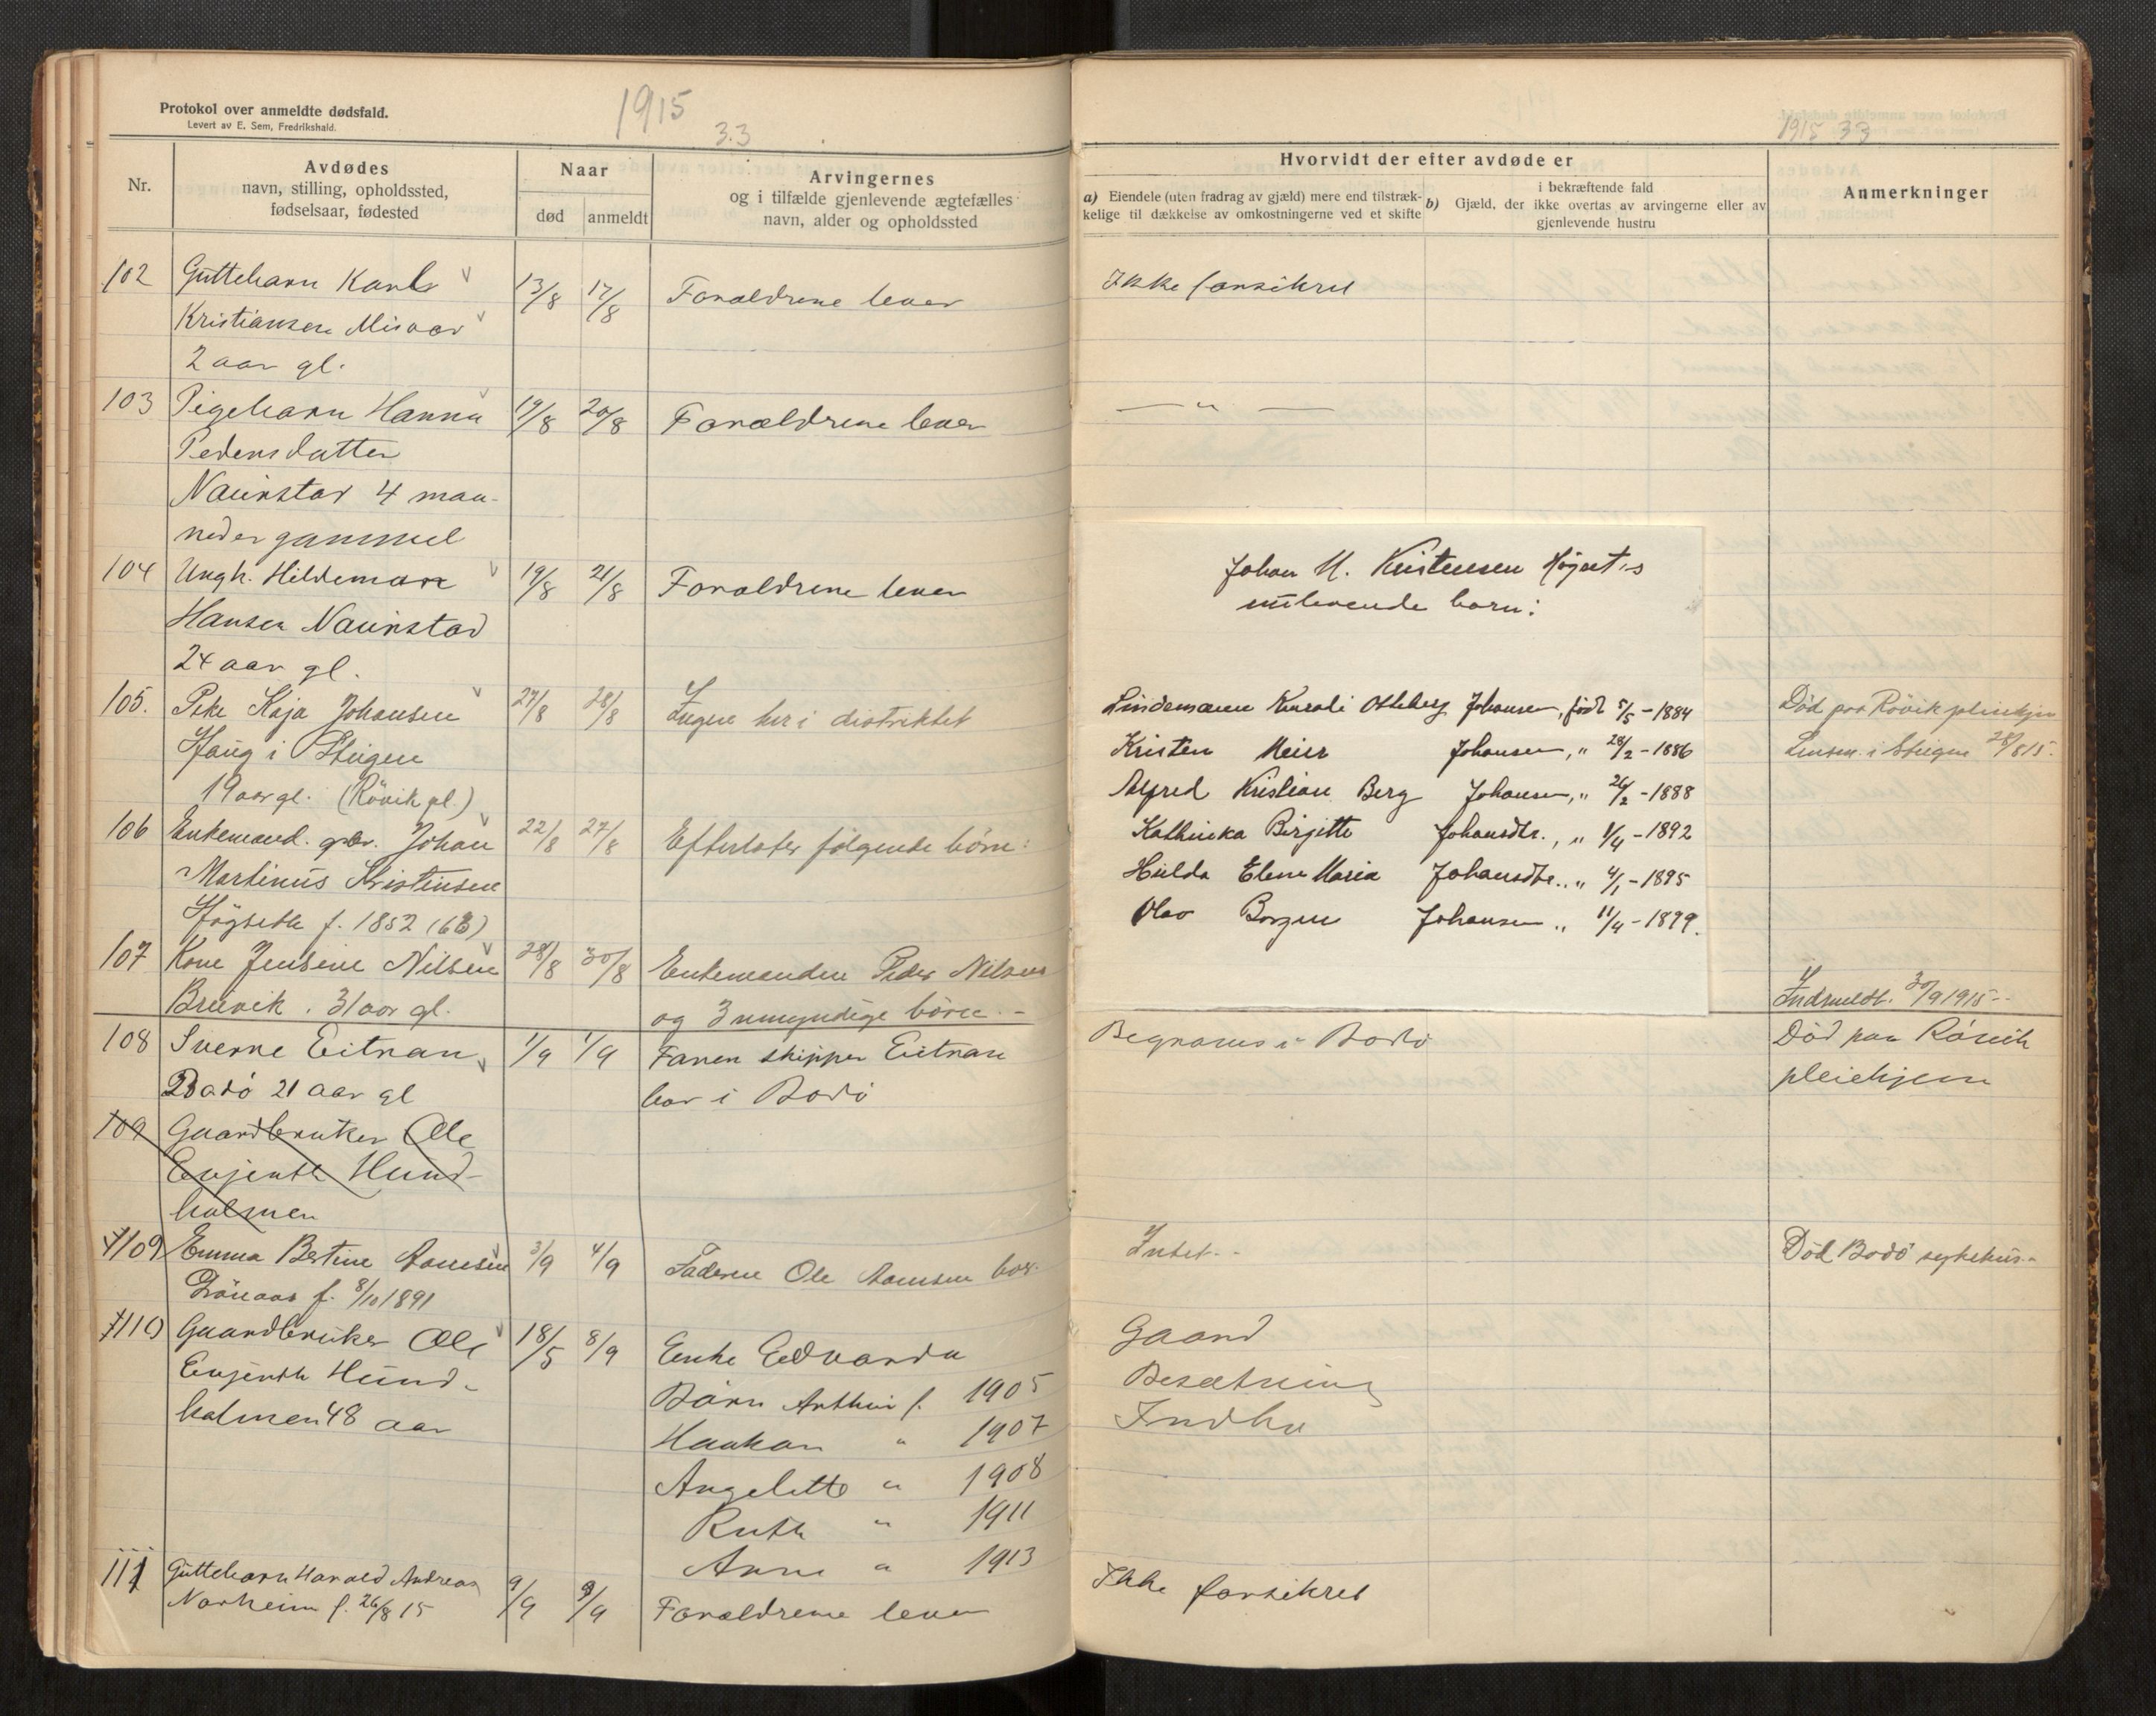 Protokol over anmeldte dødsfald.
Levert av E. Sem, Fredrikshald.
1915
33
Nr.
Avdødes
navn, stilling, opholdssted,
fødselsaar, fødested
Naar
død
anmeldt
Arvingernes
og i tilfælde gjenlevende ægtefælles
navn, alder og opholdssted
102 Guttebarn Karl 13/8 17/8 Forældrene lever
Kristiansen Misvær
2 aar gl.
103 Pigebarn Hanna 19/8 20/8 Forældrene lever
Pedersdatter
Naurstad 4 maa-
neder gammel
104 Ungk. Hildemar 19/8 21/8 Forældrene lever
Hansen Naurstad
24 aar gl.
105. Pike Kaja Johansen 27/8 28/8 Ingen her i distriktet
Haug i Steigen
19 aar gl. (Røvik pl.)
106 Enkemand. gbr. Johan 22/8 27/8 Efterlater følgende børn:
Martinus Kristensen
Høgseth f. 1852 (63)
107 Kone Jensine Nilsen 28/8 30/8 Enkemanden Peder Nilsen
Breivik. 31 aar gl. og 3 umyndige børn. -
108 Sverre Eitran 1/9 1/9 Faren skipper Eitran
Bodø 21 aar gl bor i Bodø
109 Gaardbruker Ole
Evjenth Hund-
holmen
109 Emma Bertine Aamsen 3/9 4/9 Faderen Ole Aamsen bor.
f. 8/10 1891
110 Gaardbruker Ole 18/5 8/9 Enke Edvarda
Evjenth Hund- Børn Arthur f. 1905
holmen 48 aar Haakon " 1907
Angelitte " 1908
Ruth " 1911
Anne " 1913
111 Guttebarn Harald Andreas 9/9 9/9 Forældrene lever
Norheim f. 26/8 15
1915 33
Hvorvidt der efter avdøde er
a) Eiendele (uten fradrag av gjæld) mere end tilstræk-
kelige til dækkelse av omkostningerne ved et skifte
i bekræftende fald
b) Gjæld, der ikke overtas av arvingerne eller av
gjenlevende hustru
Anmerkninger
Ikke forsikret
— " —
Johan M. Kristensen Høgset's
nulevende barn:
Lindemann Konrad Ottberg Johansen, født 5/5 - 1884
Kristen Meier Johansen, " 28/2 - 1886
Alfred Kristian Berg Johansen, " 26/2 - 1888
Kathinka Birgitte Johansdtr., " 1/4 - 1892
Hulda Elena Maria Johansdtr.. " 4/1 - 1895
Olav Borgen Johansen .. 11/4 - 1899.
Død paa Røvik pleiehjem
Lensm. i Steigen 28/8 15.
Indmeldt. 30/9 1915 --
Begraves i Bodø Død paa Røvik
pleiehjem
Intet -- Død Bodø sykehus.-
Gaard
Besætning
Indbo
Ikke forsikret